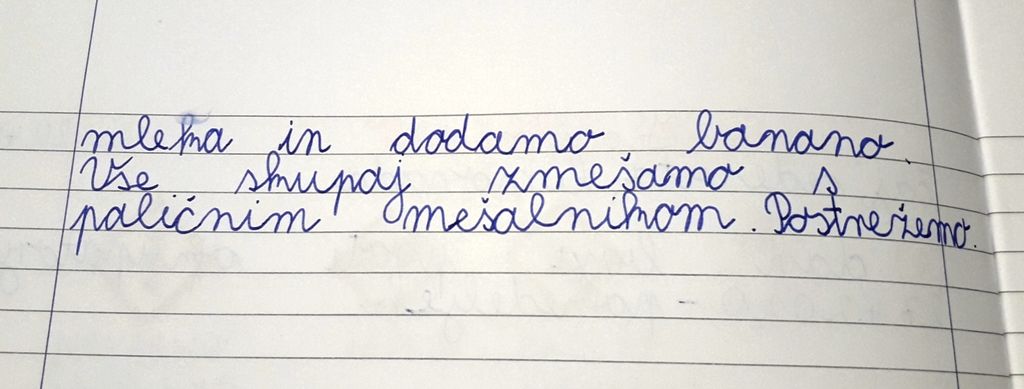 mleka in dodamo banano.
Vse skupaj zmešamo s
paličnim mešalnikom. Postrežemo.